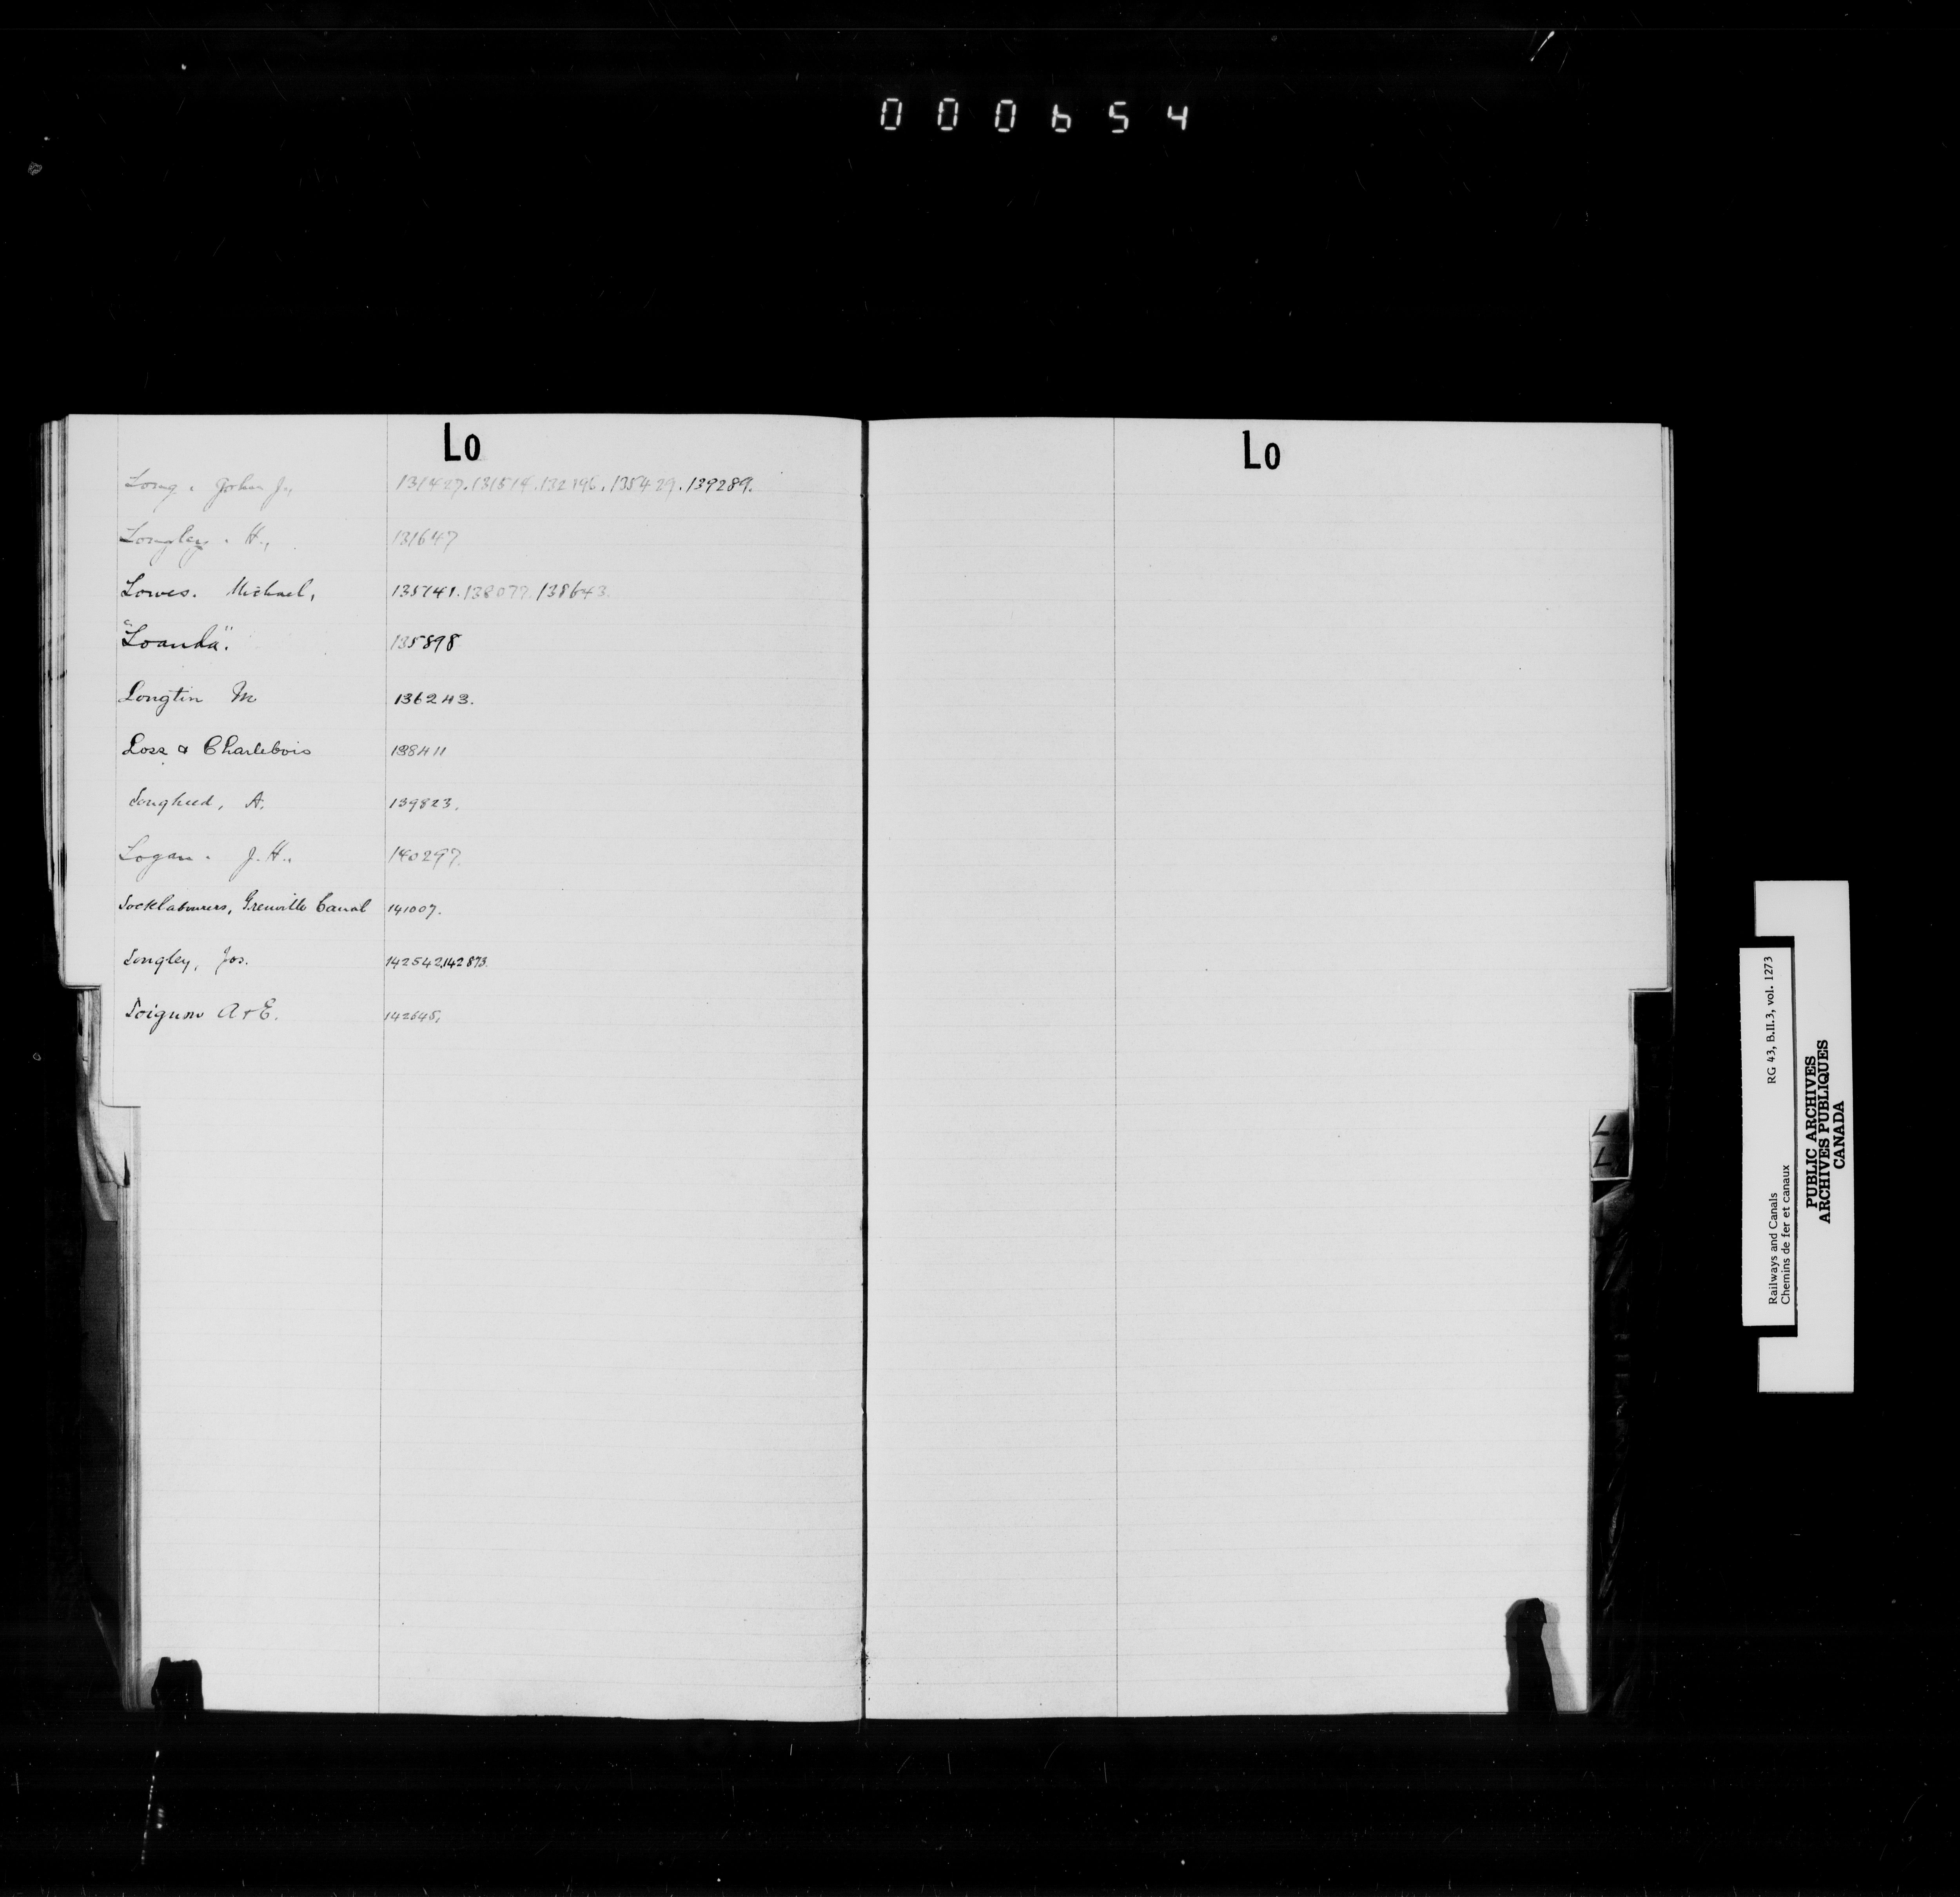 000654
Lo
Long. John J., 131427.131514.132196.135429.139289.
Longley. H., 131647
Lowes. Michael, 135741.138077.138643.
"Loanda". 135898
Longtin M 136243.
Loss & Charlebois 138411
Longheed, A. 139823.
Logan. J.H., 140297.
Locklabourers, Grenville Canal 141007.
Longley, Jos. 142542,142873.
Loignon A & E. 142645,
Lo
L
L
Railways and Canals RG 43, B.II.3, vol. 1273
Chemins de fer et canaux
PUBLIC ARCHIVES
ARCHIVES PUBLIQUES
CANADA